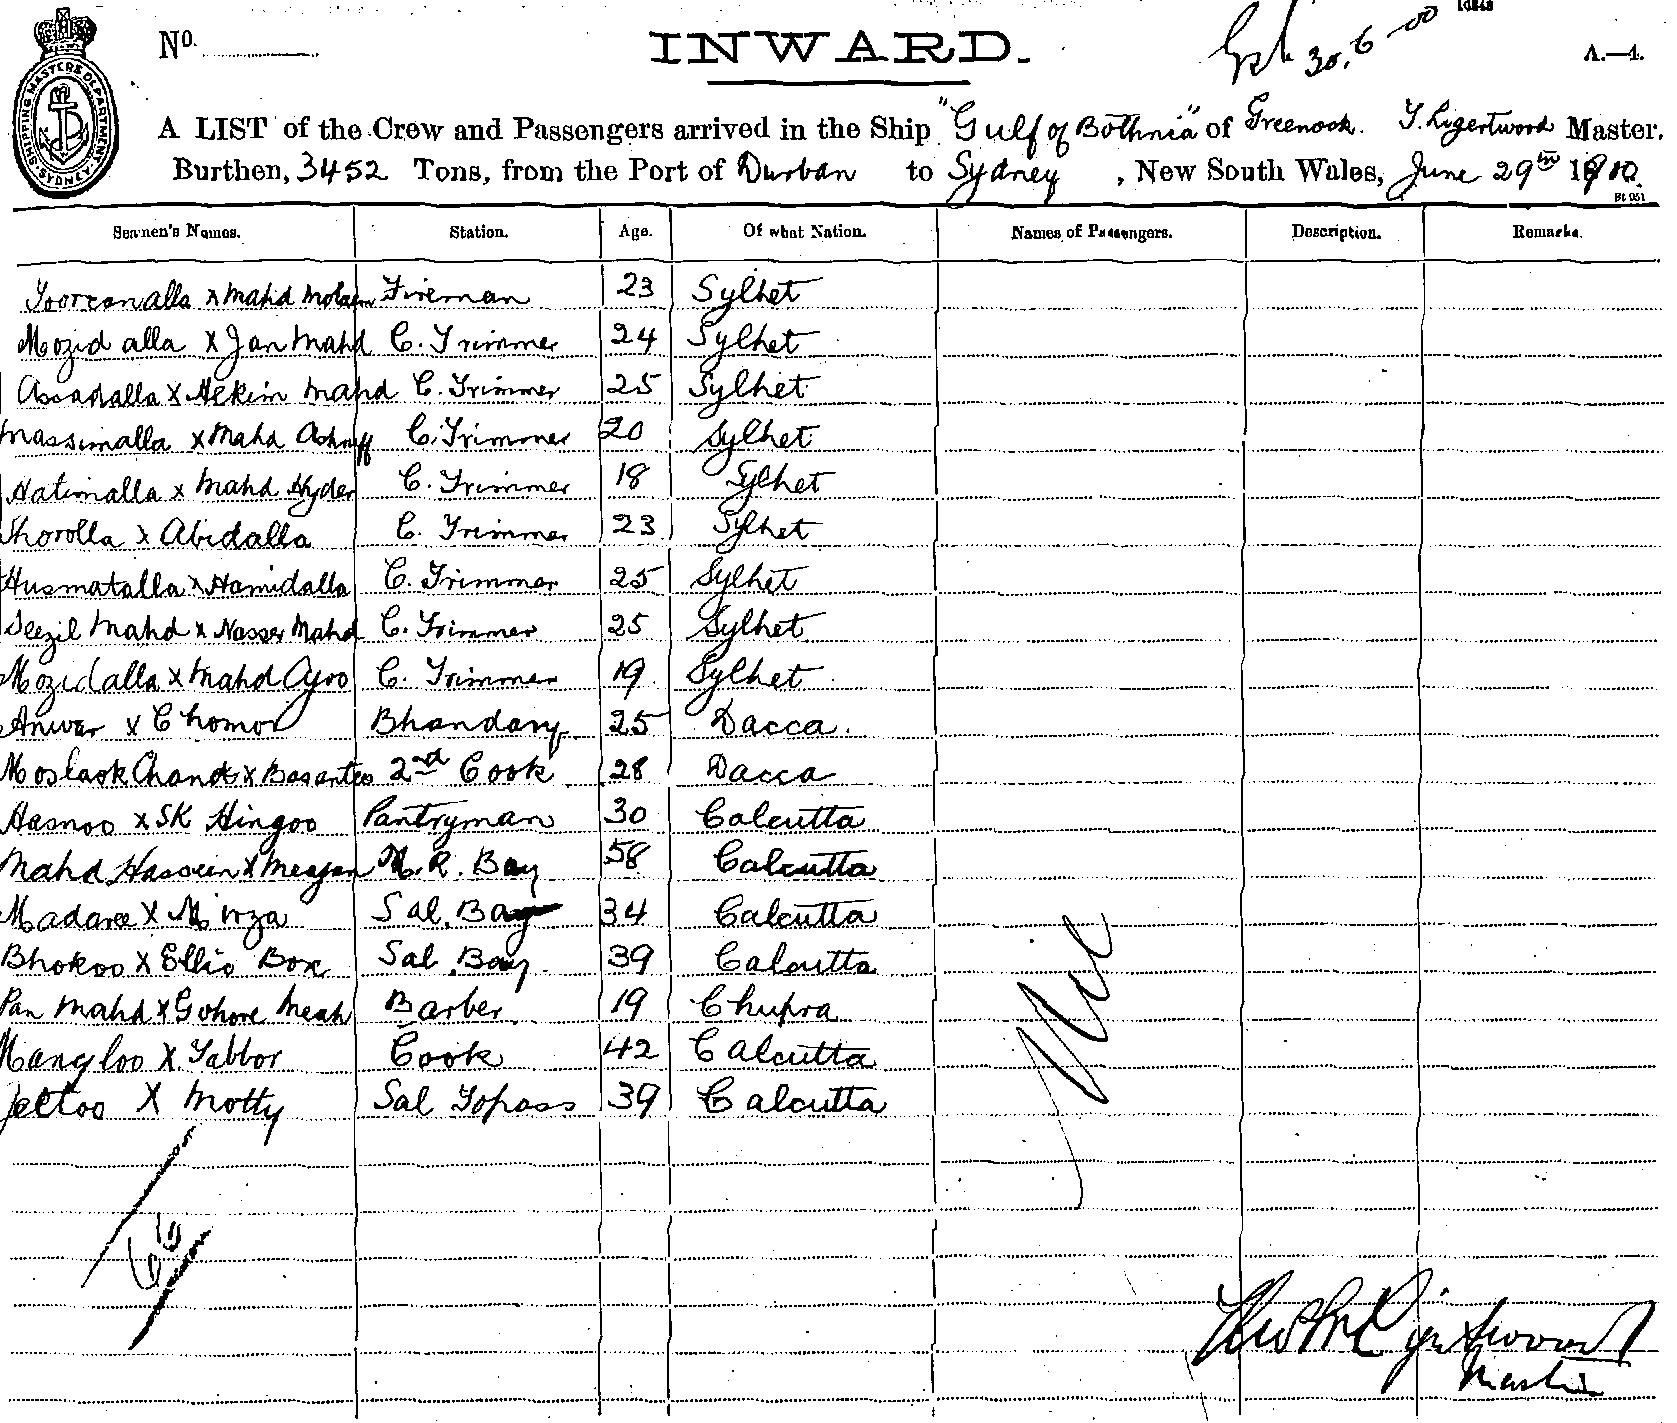 10848
No.
INWARD.
30.6-00
A.—4.
SHIPPING MASTERS DEPARTMENT SYDNEY
A LIST of the Crew and Passengers arrived in the Ship "Gulf of Bothnia" of Greenock. T. Ligertwood Master.
Burthen, 3452 Tons, from the Port of Durban to Sydney, New South Wales, June 29th 1910.
Seamen's Names. Station. Age. Of what Nation. Names of Passengers. Description. Remarks.
x Mahd Fireman 23 Sylhet
Mozid alla x Jan Mahd C. Trimmer 24 Sylhet
Assadalla x Hekim Mahd C. Trimmer 25 Sylhet
Massimalla x Mahd Ashraff C. Trimmer 20 Sylhet
Hatimalla x Mahd Hyder C. Trimmer 18 Sylhet
Shorolla x Abidalla C. Trimmer 23 Sylhet
Husmatalla x Hamidalla C. Trimmer 25 Sylhet
Seezil Mahd x Nasser Mahd C. Trimmer 25 Sylhet
Mozid alla x Mahd Ayoo C. Trimmer 19 Sylhet
Anwar x Chomor Bhandary 25 Dacca.
Chand x 2nd Cook 28 Dacca
Hasnoo x SK Hingoo Pantryman 30 Calcutta
Mahd Hassein x Meajan M. R. Boy 58 Calcutta
Madaree x Mirza Sal. Boy 34 Calcutta
Bhokoo x Ellio Box Sal. Boy. 39 Calcutta
Pan Mahd x Gohore Meah Barber 19 Chupra
Mangloo x Jabbor Cook 42 Calcutta
Jettoo X Motty Sal Topass 39 Calcutta
Nil
Master